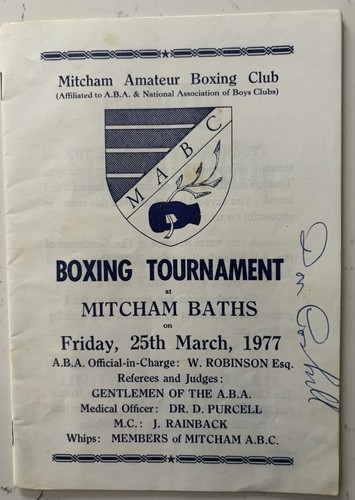 Mitcham Amateur Boxing Club
(Affiliated to A.B.A. & National Association of Boys Clubs)
MABC
BOXING TOURNAMENT
at
MITCHAM BATHS
on
Friday, 25th March, 1977
A.B.A. Official-in-Charge: W. ROBINSON Esq.
Referees and Judges:
GENTLEMEN OF THE A.B.A.
Medical Officer: DR. D. PURCELL
M.C.: J. RAINBACK
Whips: MEMBERS of MITCHAM A.B.C.
Don